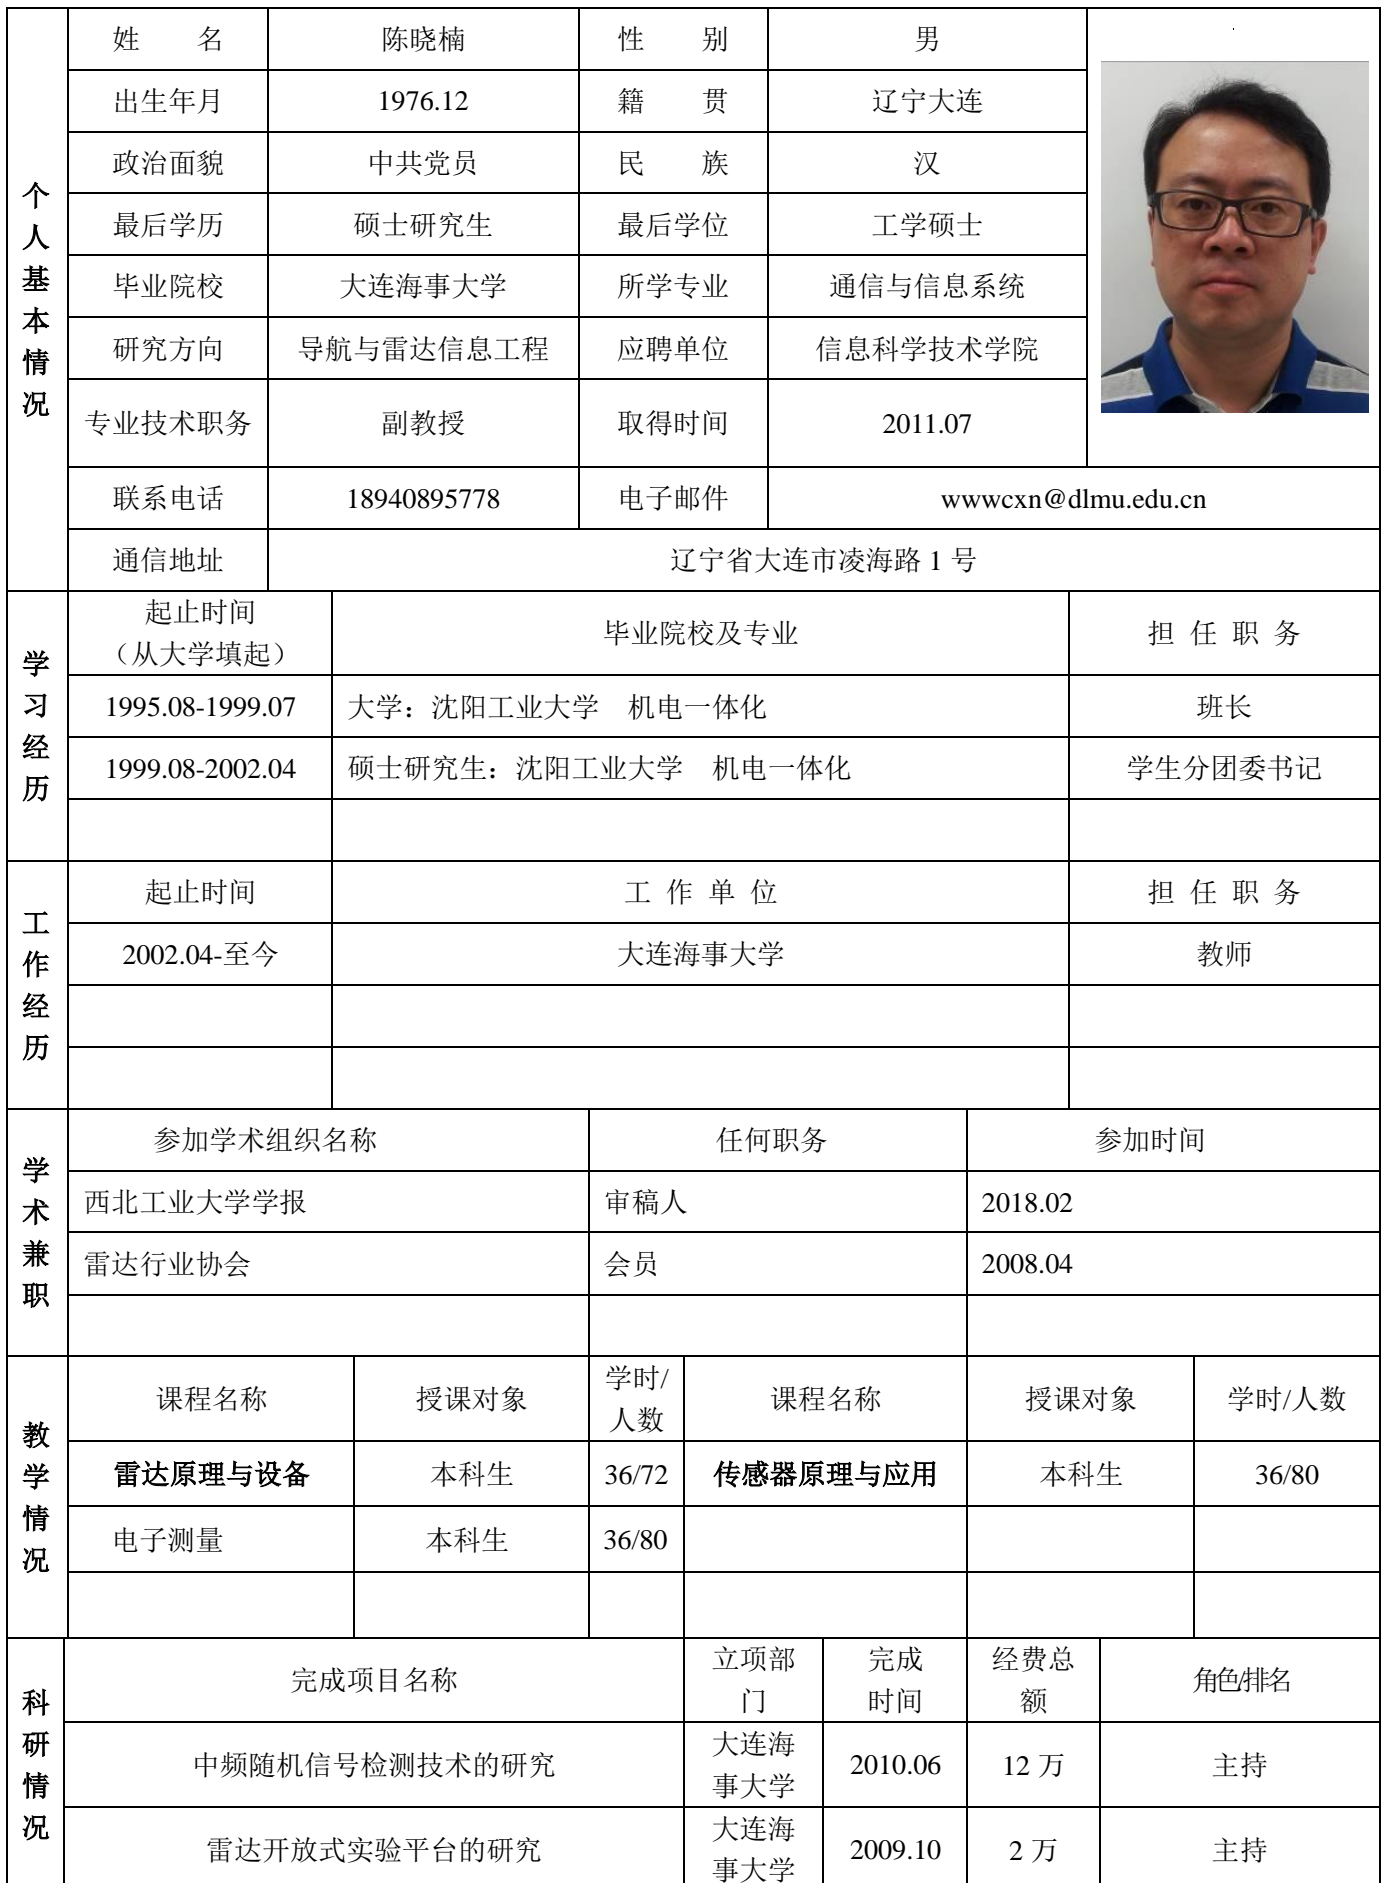 个人基本情况
姓 名 陈晓楠 性 别 男
出生年月 1976.12 籍 贯 辽宁大连
政治面貌 中共党员 民 族 汉
最后学历 硕士研究生 最后学位 工学硕士
毕业院校 大连海事大学 所学专业 通信与信息系统
研究方向 导航与雷达信息工程 应聘单位 信息科学技术学院
专业技术职务 副教授 取得时间 2011.07
联系电话 18940895778 电子邮件 wwwcxn@dlmu.edu.cn
通信地址 辽宁省大连市凌海路 1 号
学习经历
起止时间
（从大学填起）
毕业院校及专业 担 任 职 务
1995.08-1999.07 大学：沈阳工业大学 机电一体化 班长
1999.08-2002.04 硕士研究生：沈阳工业大学 机电一体化 学生分团委书记
工作经历
起止时间 工 作 单 位 担 任 职 务
2002.04-至今 大连海事大学 教师
学术兼职
参加学术组织名称 任何职务 参加时间
西北工业大学学报 审稿人 2018.02
雷达行业协会 会员 2008.04
教学情况
课程名称 授课对象 学时/
人数
课程名称 授课对象 学时/人数
雷达原理与设备 本科生 36/72 传感器原理与应用 本科生 36/80
电子测量 本科生 36/80
科研情况
完成项目名称
立项部
门
完成
时间
经费总
额
角色/排名
中频随机信号检测技术的研究
大连海
事大学
2010.06 12 万 主持
雷达开放式实验平台的研究
大连海
事大学
2009.10 2 万 主持